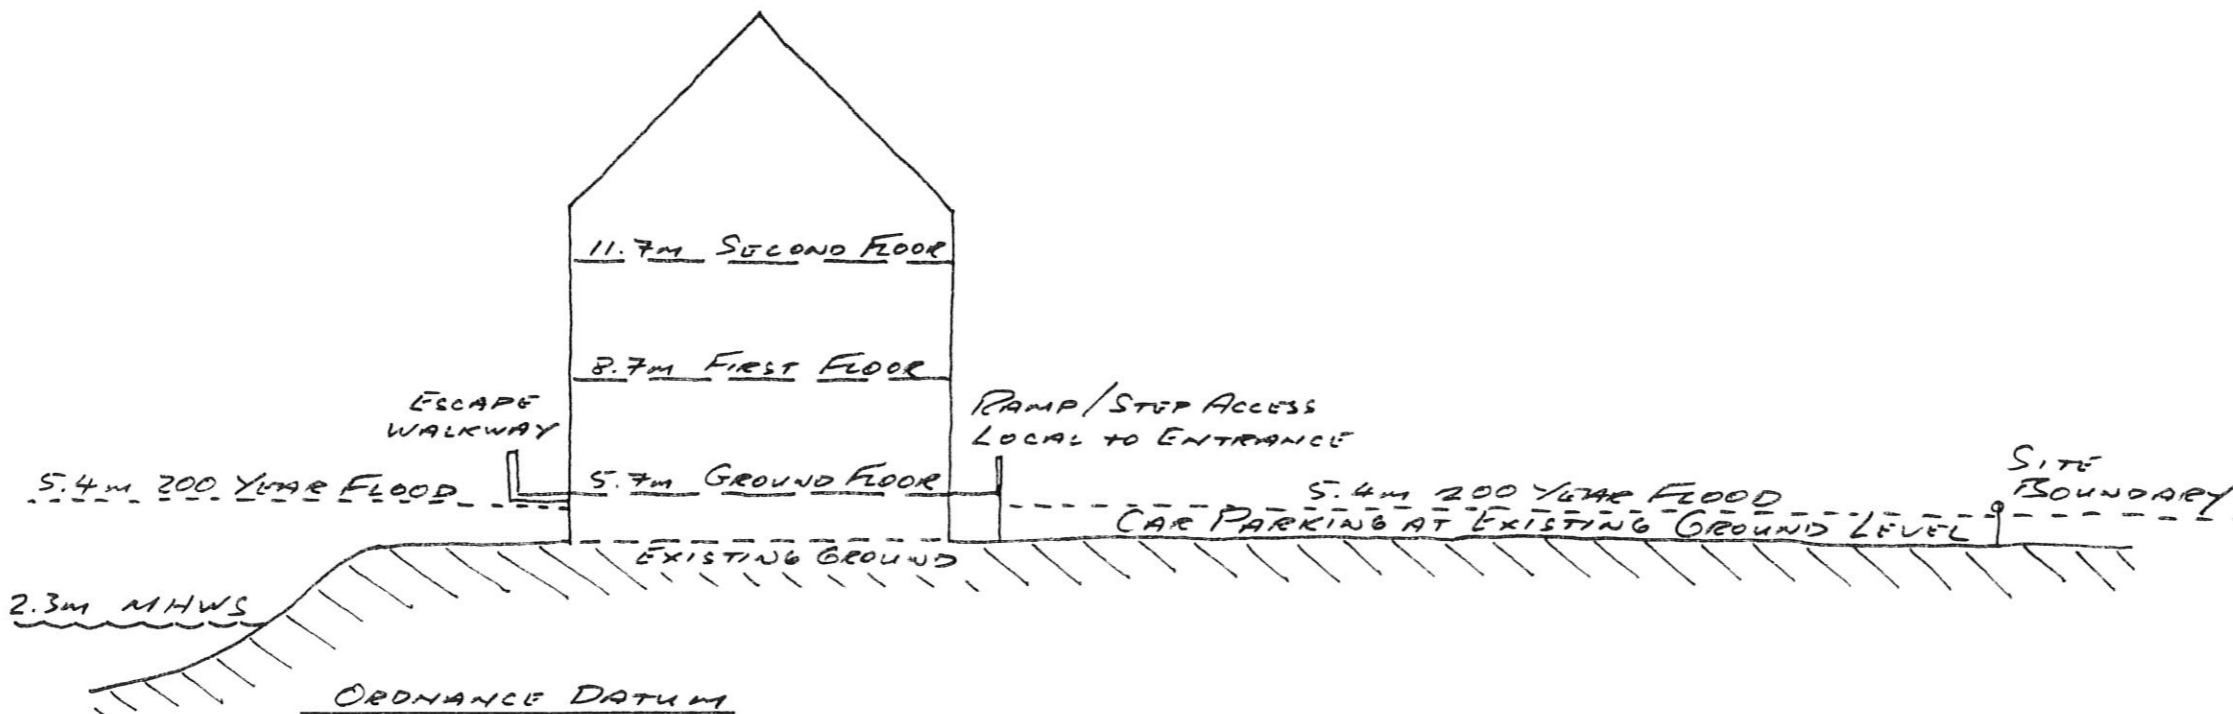 11.7m SECOND FLOOR
8.7m FIRST FLOOR
ESCAPE
WALKWAY
RAMP/STEP ACCESS
LOCAL TO ENTRANCE
5.4m 200 YEAR FLOOD
5.7m GROUND FLOOR
5.4m 200 YEAR FLOOD
SITE
BOUNDARY
CAR PARKING AT EXISTING GROUND LEVEL
EXISTING GROUND
2.3m MHWS
ORDNANCE DATUM